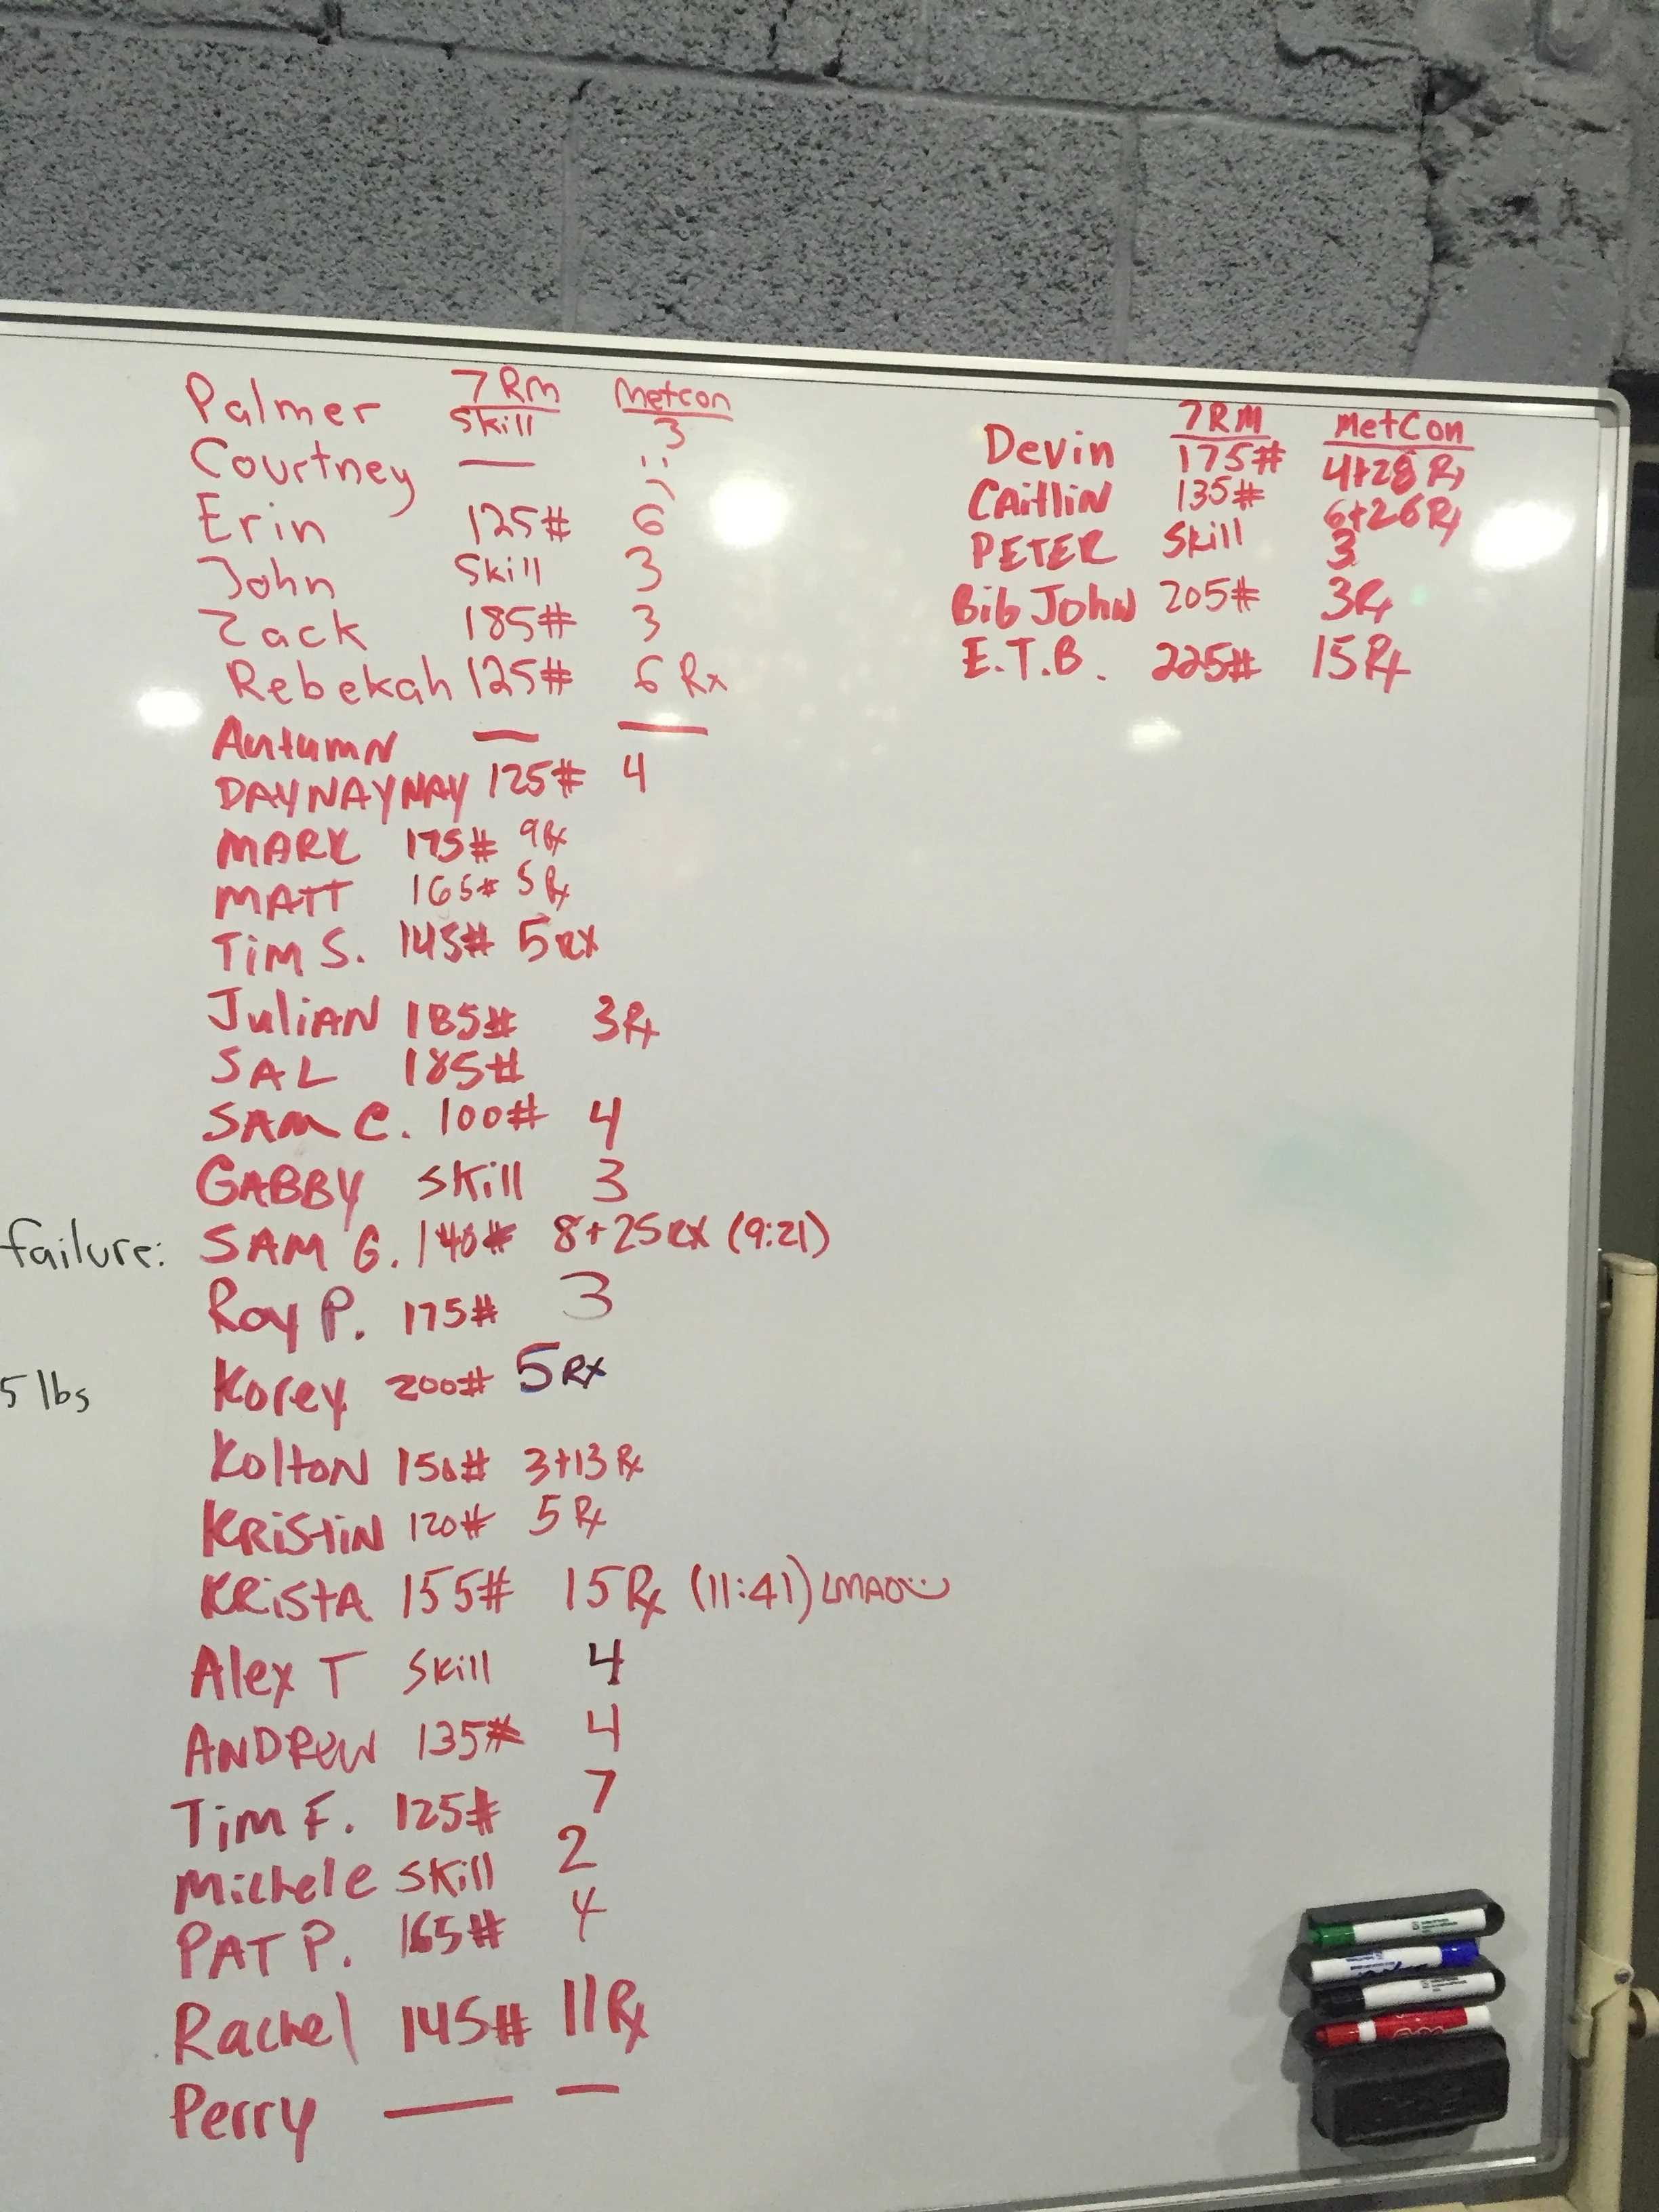 7RM Metcon
Palmer Skill 3
Courtney — :)
Erin 125# 6
John Skill 3
Zack 185# 3
Rebekah 125# 6 Rx
Autumn — —
DAYNAYNAY 125# 4
MARK 175# 9Rx
MATT 165# 5Rx
Tim S. 145# 5RX
Julian 185# 3Rx
SAL 185#
SAM C. 100# 4
GABBY skill 3
failure:
SAM G. 140# 8+25RX (9:21)
Roy P. 175# 3
5 lbs
Korey 200# 5RX
Kolton 150# 3+13 Rx
KRistiN 120# 5 Rx
KRistA 155# 15Rx (11:41) LMAO :)
Alex T Skill 4
ANDREW 135# 4
Tim F. 125# 7
Michele Skill 2
PAT P. 165# 4
Rachel 145# 11Rx
Perry — —
7RM MetCon
Devin 175# 4+28 Rx
CAitliN 135# 6+26Rx
PETER Skill 3
Bib JOHN 205# 3Rx
E.T.B. 225# 15Rx